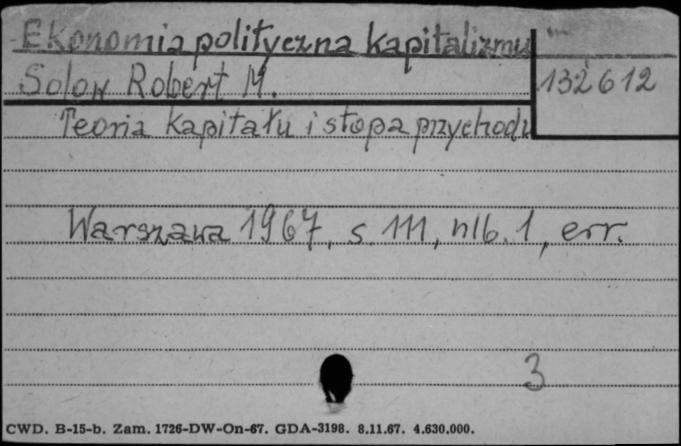 Ekonomia polityczna kapitalizmu
Solow Robert M.
132612
Teoria kapitału i stopa przychodu
Warszawa 1967, s. 111, nlb. 1, err.
3
CWD. B-15-b. Zam. 1726-DW-On-67. GDA-3198. 8.11.67. 4.630.000.